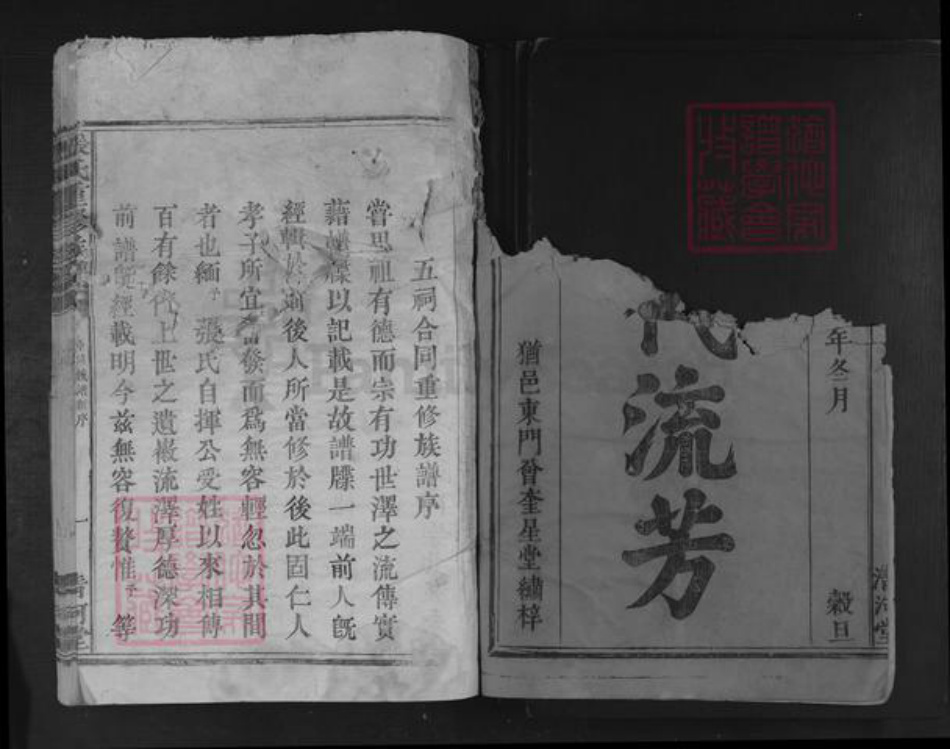 年冬月
穀旦
代流芳
猶邑東門曾奎星堂繡梓
五祠合同重修族譜序
嘗思祖有德而宗有功世澤之流傳實
藉譜牒以記載是故譜牒一端前人旣
經輯於前後人所當修於後此固仁人
孝子所宜奮發而爲無容輕忽於其間
者也緬予張氏自揮公受姓以來相傳
百有餘代上世之遺徽流澤厚德深功
前譜旣經載明今茲無容復贅惟予等
張氏重修族譜
一
清河堂